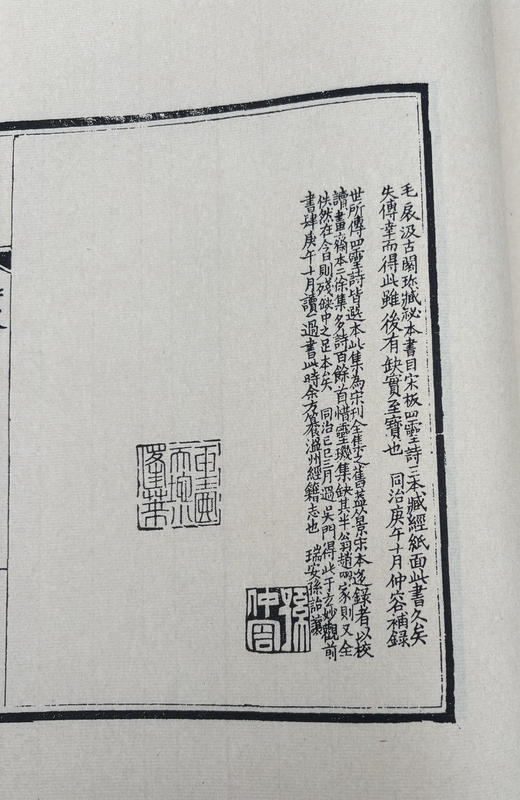 毛扆汲古閣珎藏祕本書目宋板四靈詩三本藏經紙面此書久矣
失傳幸而得此雖後有缺實至寶也 同治庚午十月仲容補錄
世所傳四靈詩皆選本此集為宋刊全集之舊葢景宋本迻錄者以校
讀畫齋本二徐集多詩百餘首惜靈璣集缺其半翁趙兩家則又全
佚然在今日則殘缺中之足本矣 同治己巳三月過吳門得此于玄妙觀前
書肆庚午十月讀一過書此時余方篹溫州經籍志也 瑞安孫詒讓
孫
仲容